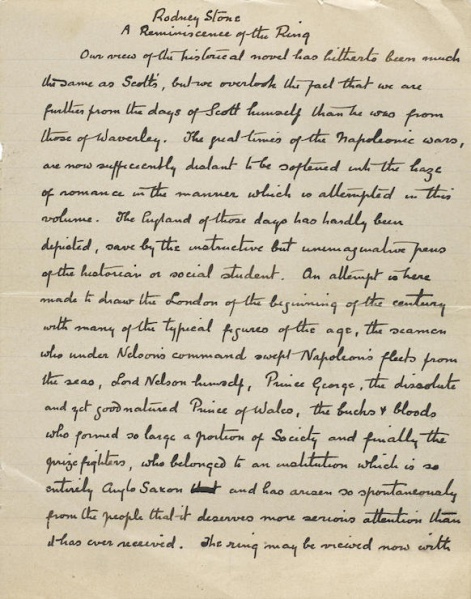 Rodney Stone
A Reminiscence of the Ring
Our view of the historical novel has hitherto been much
the same as Scott's, but we overlook the fact that we are
further from the days of Scott himself than he was from
those of Waverley. The great times of the Napoleonic wars,
are now sufficiently distant to be softened into the haze
of romance in the manner which is attempted in this
volume. The England of those days has hardly been
depicted, save by the instructive but unimaginative pens
of the historian or social student. An attempt is here
made to draw the London of the beginning of the century
with many of the typical figures of the age, the seamen
who under Nelson's command swept Napoleon's fleets from
the seas, Lord Nelson himself, Prince George, the dissolute
and yet goodnatured Prince of Wales, the bucks & bloods
who formed so large a portion of Society and finally the
prizefighters, who belonged to an institution which is so
entirely Anglo Saxon and has arisen so spontaneously
from the people that it deserves more serious attention than
it has ever received. The ring may be viewed now with